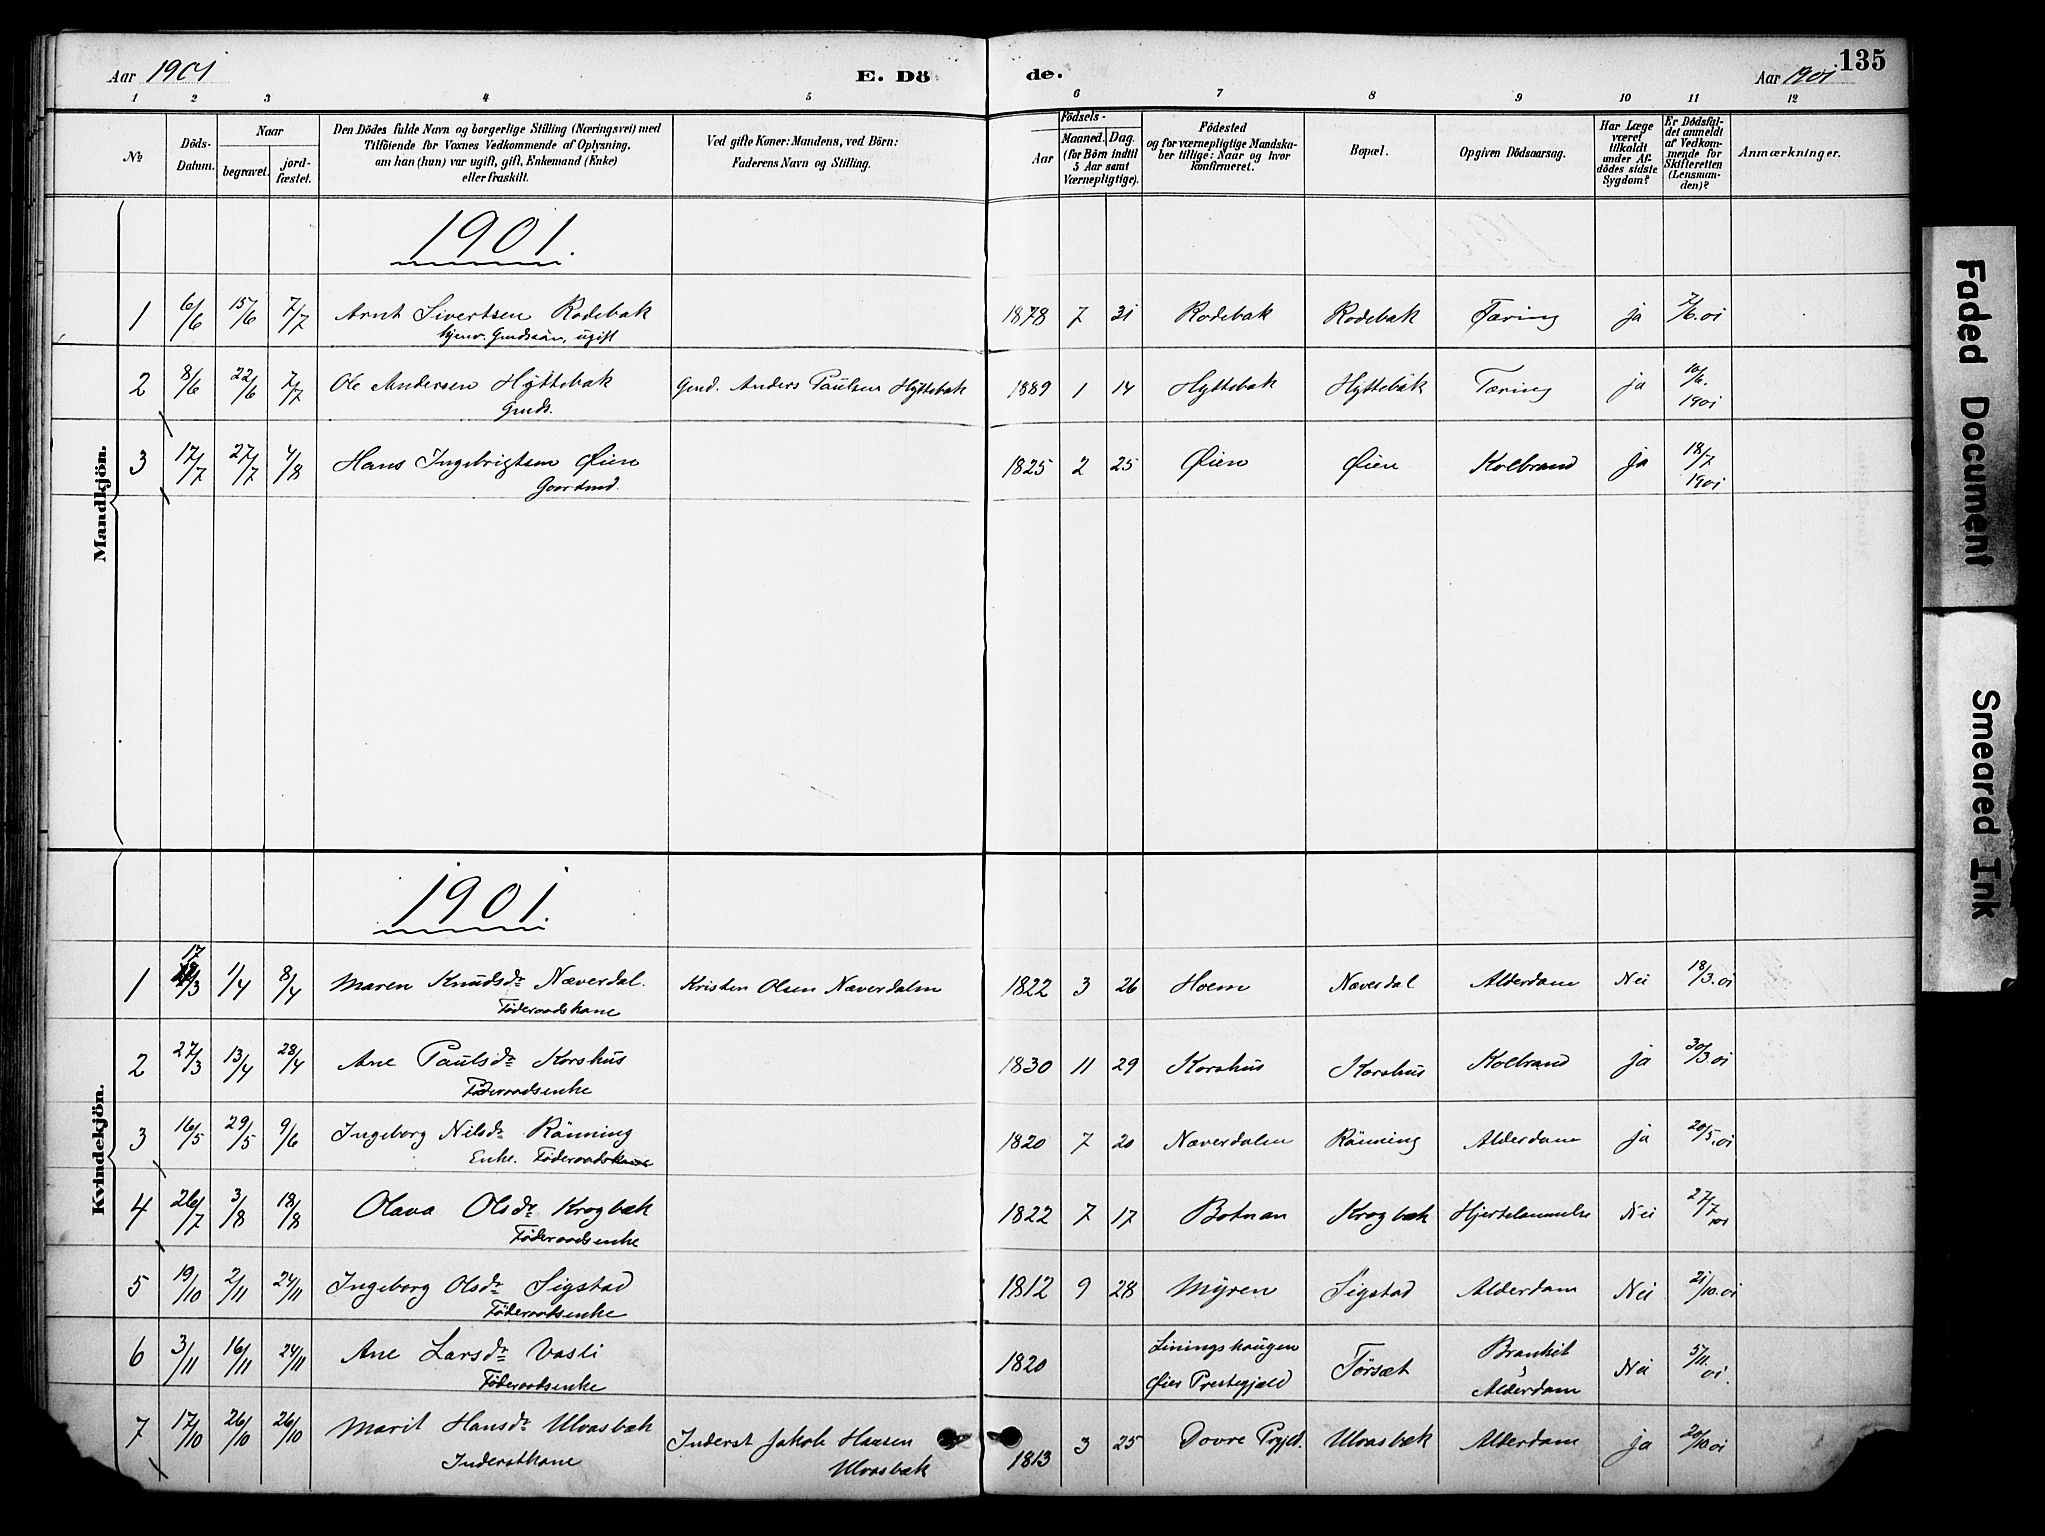 Aar 1901 E. Dö de. Aar 1901 135
1 2 3 4 5 6 7 8 9 10 11 12
№
Döds-
Datum.
Naar
begravet.
jord-
fæstet.
Den Dödes fulde Navn og borgerlige Stilling (Næringsvei) med
Tilföiende for Voxnes Vedkommende af Oplysning,
om han (hun) var ugift, gift, Enkemand (Enke)
eller fraskilt.
Ved gifte Koner: Mandens, ved Börn:
Faderens Navn og Stilling.
Födsels-
Aar
Maaned.
Dag.
(for Börn indtil
5 Aar samt
Værnepligtige).
Födested
og for værnepligtige Mandska-
ber tillige: Naar og hvor
konfirmeret.
Bopæl.
Opgiven Dödsaarsag.
Har Læge
været
tilkaldt
under Af-
dödes sidste
Sygdom?
Er Dödsfal-
det anmeldt
af Vedkom-
mende for
Skifteretten
(Lensman-
den)?
Anmærkninger.
Mandkjön.
1901.
1 6/6 15/6 7/7 Arnt Sivertsen Rodebak 1878 7 31 Rodebak Rodebak Tæring ja 7/6.01
Gmdssön, ugift
2 8/6 22/6 7/7 Ole Andersen Hyttebak Gmd. Anders Paulsen Hyttebak 1889 1 14 Hyttebak Hyttebak Tæring ja 10/6.
Gmds. 1901
3 17/7 27/7 4/8 Hans Ingebrigtsen Øien 1825 2 25 Øien Øien Kolbrand ja 18/7
Gaardmd. 1901
Kvindekjön.
1901.
17
1 18/3 1/4 8/4 Maren Knudsdr Næverdal. Kristen Olsen Næverdalen 1822 3 26 Hoem Næverdal Alderdom Nei 18/3.01
Føderaadskone
2 27/3 13/4 28/4 Ane Paulsdr Korshus 1830 11 29 Korshus Korshus Kolbrand ja 30/3.01
Føderaadsenke
3 16/5 29/5 9/6 Ingeborg Nilsdr Rönning 1820 7 20 Næverdalen Rönning Alderdom ja 20/5.01
Enke. Føderaadskone
4 26/7 3/8 18/8 Olava Olsdr Krogbæk 1822 7 17 Botnan Krogbæk Hjertelammelse Nei 27/7
Føderaadsenke 01
5 19/10 2/11 24/11 Ingeborg Olsdr Sigstad 1812 9 28 Myren Sigstad Alderdom Nei 21/10.01
Føderaadsenke
6 3/11 16/11 24/11 Ane Larsdr Vasli 1820 Liningshaugen Törsæt Bronkit Nei 5/11.
Føderaadsenke Øier Prestegjæld Alderdom 01.
7 17/10 26/10 26/10 Marit Hansdr Ulvasbæk Inderst Jakob Hansen 1813 3 25 Dovre Prgjd. Ulvasbæk Alderdom ja 20/10.01
Inderstkone Ulvasbæk
Faded Document
Smeared Ink